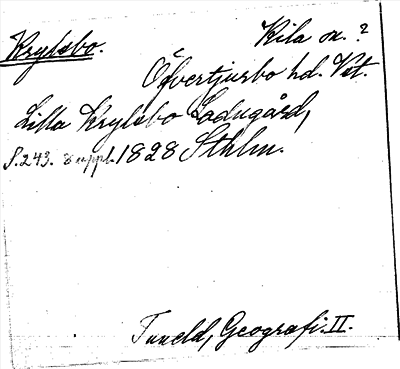 Krylsbo. Kila sn. ?
Öfvertjursbo hd. Vst.
Lilla Krylsbo Ladugård,
S. 243. 8 uppl. 1828 Sthlm.
Tuneld, Geografi. II.